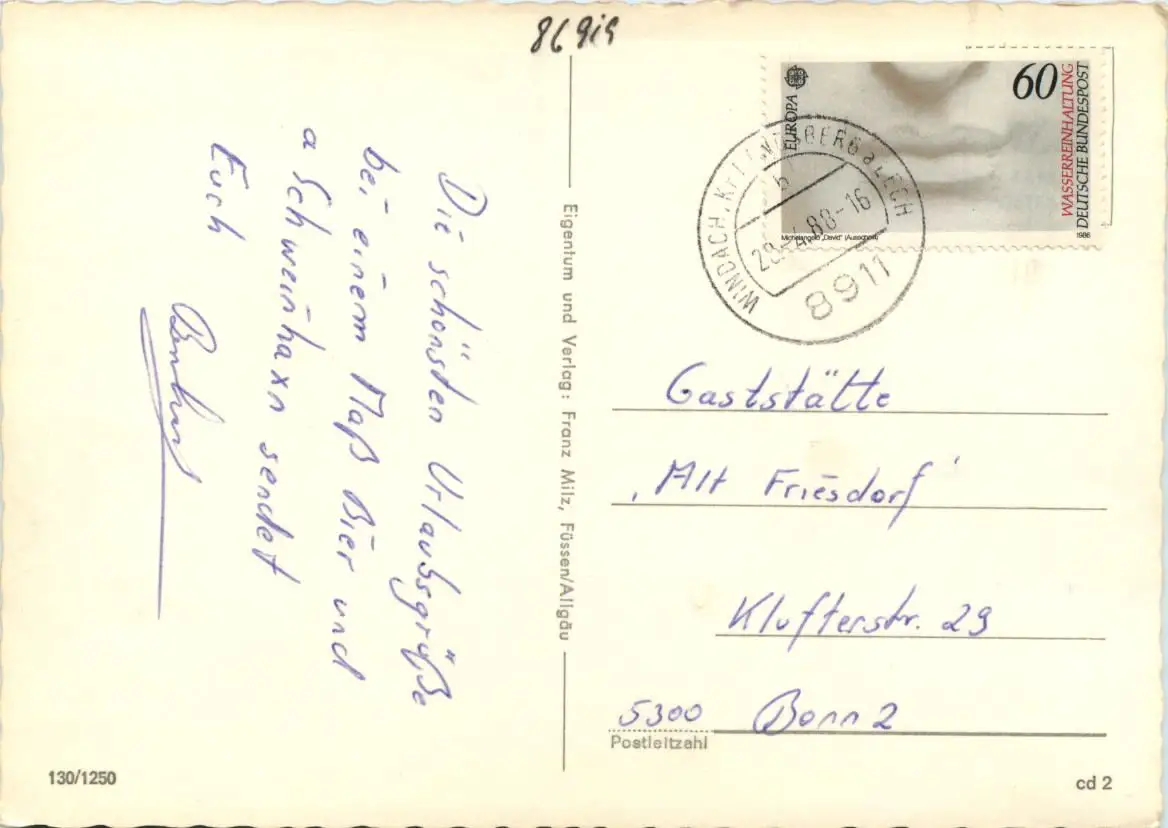 Die schönsten Urlaubsgrüße
bei einem Maß Bier und
a Schweinhaxn sendet
Euch
Eigentum und Verlag: Franz Milz, Füssen/Allgäu
60
EUROPA
WASSERREINHALTUNG
DEUTSCHE BUNDESPOST
Michelangelo „David" (Ausschnitt)
1986
WINDACH, LANDSBERG a LECH
b
-4.88-16
8911
Gaststätte
'Alt Friesdorf'
Klufterstr. 29
5300 Bonn 2
Postleitzahl
130/1250
cd 2